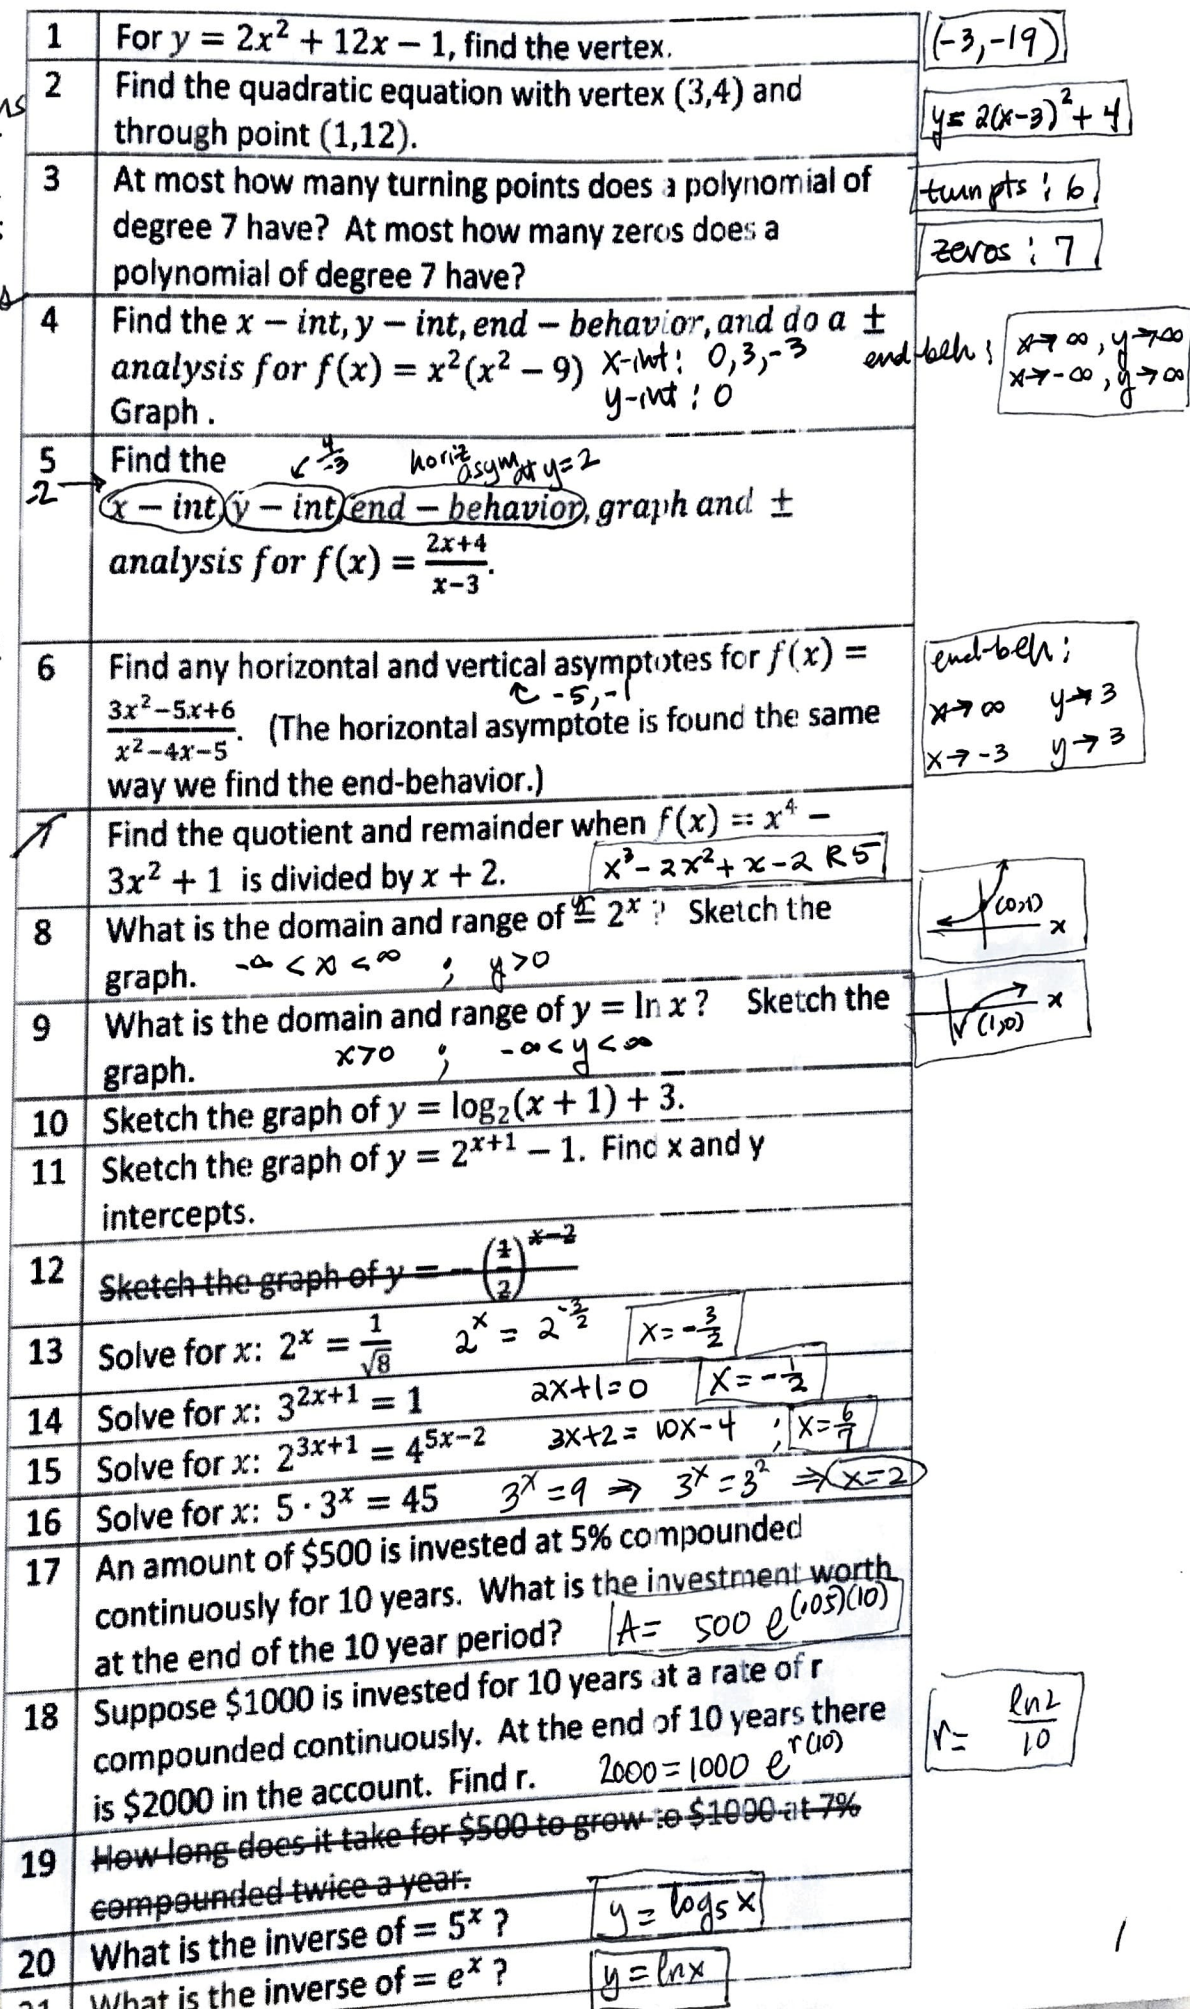 1 For y = 2x² + 12x − 1, find the vertex. (-3,-19)
2 Find the quadratic equation with vertex (3,4) and
through point (1,12). y = 2(x-3)² + 4
3 At most how many turning points does a polynomial of turn pts : 6
degree 7 have? At most how many zeros does a zeros : 7
polynomial of degree 7 have?
4 Find the x − int, y − int, end − behavior, and do a ±
analysis for f(x) = x²(x² − 9) x-int: 0,3,-3 end-beh : x→∞, y→∞
Graph. y-int : 0 x→-∞, y→∞
5 Find the 4/-3 horiz asym at y=2
-2 → x − int, y − int, end − behavior, graph and ±
analysis for f(x) = (2x+4)/(x−3).
6 Find any horizontal and vertical asymptotes for f(x) = end-beh :
-5,-1
(3x²−5x+6)/(x²−4x−5). (The horizontal asymptote is found the same x→∞ y→3
way we find the end-behavior.) x→-3 y→3
7 Find the quotient and remainder when f(x) = x⁴ −
3x² + 1 is divided by x + 2. x³-2x²+x-2 R5
8 What is the domain and range of y = 2ˣ ? Sketch the (0,1) x
graph. -∞ < x < ∞ ; y>0
9 What is the domain and range of y = ln x ? Sketch the x
graph. x>0 ; -∞<y<∞ (1,0)
10 Sketch the graph of y = log₂(x + 1) + 3.
11 Sketch the graph of y = 2ˣ⁺¹ − 1. Find x and y
intercepts.
12 Sketch the graph of y = −(1/2)ˣ⁻²
13 Solve for x: 2ˣ = 1/√8 2^x = 2^(-3/2) x = -3/2
14 Solve for x: 3²ˣ⁺¹ = 1 2x+1=0 x = -1/2
15 Solve for x: 2³ˣ⁺¹ = 4⁵ˣ⁻² 3x+2 = 10x-4 ; x = 6/7
16 Solve for x: 5 · 3ˣ = 45 3ˣ=9 ⇒ 3ˣ=3² ⇒ x=2
17 An amount of $500 is invested at 5% compounded
continuously for 10 years. What is the investment worth
at the end of the 10 year period? A = 500 e^(.05)(10)
18 Suppose $1000 is invested for 10 years at a rate of r
compounded continuously. At the end of 10 years there r = ln2/10
is $2000 in the account. Find r. 2000 = 1000 e^r(10)
19 How long does it take for $500 to grow to $1000 at 7%
compounded twice a year.
20 What is the inverse of = 5ˣ ? y = log₅ x
21 What is the inverse of = eˣ ? y = lnx
1